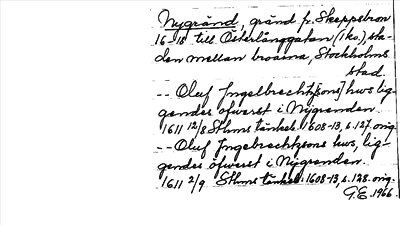 Nygränd, gränd fr. Skeppsbron
16-18 till Österlånggatan (1 kv.), sta-
den mellan broarna, Stockholms
stad.
-- Oluf Jngelbrechtz[sons] hws lig-
gendes öfwerst i Nÿgrenden.
1611 12/8 Sthms tänkeb. 1608-13, s. 127. orig.
-- Oluf Jngebrechtzsons hws, lig-
gendes öfwerst i Nÿgrenden.
1611 2/9 Sthms tänkeb. 1608-13, s. 128. orig.
G.E. 1966.